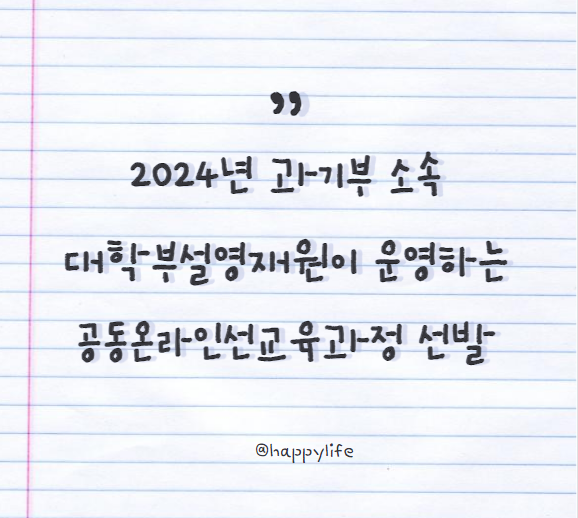 ”
2024년 과기부 소속
대학부설영재원이 운영하는
공동온라인선교육과정 선발
@happylife